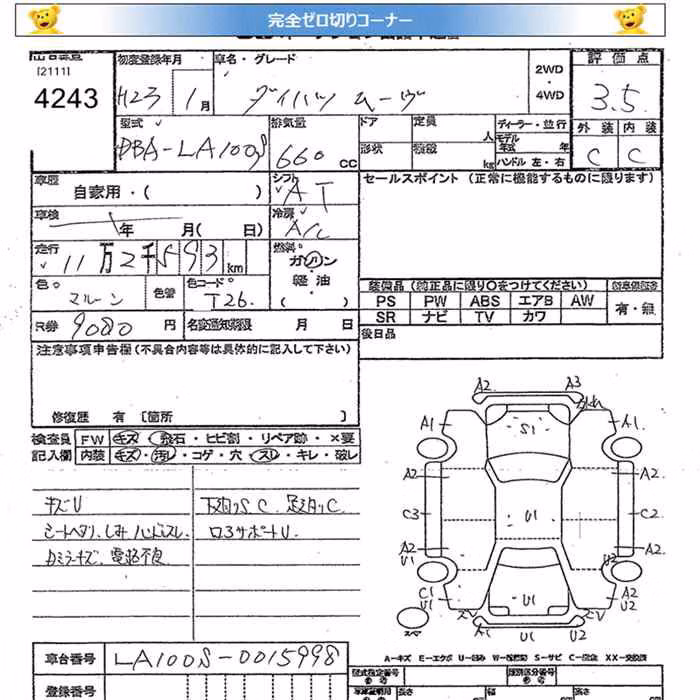 完全ゼロ切りコーナー
出品番
[2111]
4243
初度登録年月
H23 1月
車名・グレード
ダイハツ ムーヴ
2WD
・
4WD
評価点
3.5
型式
DBA-LA100S
排気量
660 cc
ドア
定員
人
形状
積載
kg
ディーラー・並行
モデル年式 年
ハンドル 左・右
外装 内装
C C
車歴
自家用・( )
シフト
AT
セールスポイント (正常に機能するものに限ります)
車検
年 月( 日)
冷房
A/C
走行
11万2千593 km
燃料
ガソリン
・
軽油
( )
色
マルーン
色替
色コード
T26.
装備品 (純正品に限り○をつけてください)
PS PW ABS エアB AW
SR ナビ TV カワ
有・無
R券 9080 円
名変通知期限 月 日
後日品
注意事項申告欄(不具合内容等は具体的に記入して下さい)
修復歴 有 [箇所 ]
検査員 FW キズ・飛石・ヒビ割・リペア跡・×要
記入欄 内装 キズ・汚れ・コゲ・穴・スレ・キレ・破レ
キズU
シートヘタリ、しみ ハンドルスレ、
下廻りS C、足廻りC、
コアサポートU、
A2 A3
A1 S1 A1
A2 A2
C3 U1 C2
A2 A2
U1 U2
C1 A2
U1 U1 U2
A1 U1 U2
車台番号 LA100S-0015998
登録番号
A-キズ E-エクボ U-凹み W-補修跡 S-サビ C-腐食 XX-交換済
型式指定番号
類別区分番号
長さ 幅 高さ